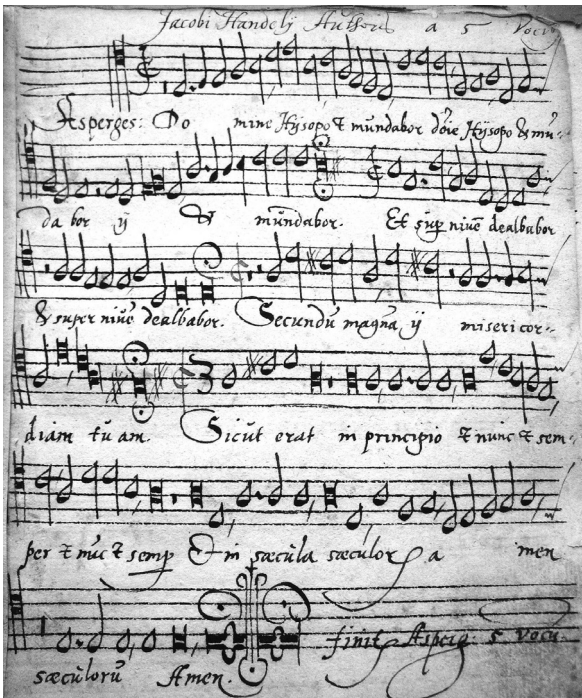 Jacobi Handelj Authoris a 5 Vocū
Asperges: Do mine Hÿsopo & mūndabor dōie Hÿsopo & mū-
da bor ÿ & mūndabor. Et sup niuē dealbabor
& super niuē dealbabor. Secundū magna ÿ misericor-
diam tuam. Sicut erat in principio & nunc & sem-
per & nūc & semp Et in sæcula sæculor a men
sæculorū Amen. finit Asperg: 5 vocū.